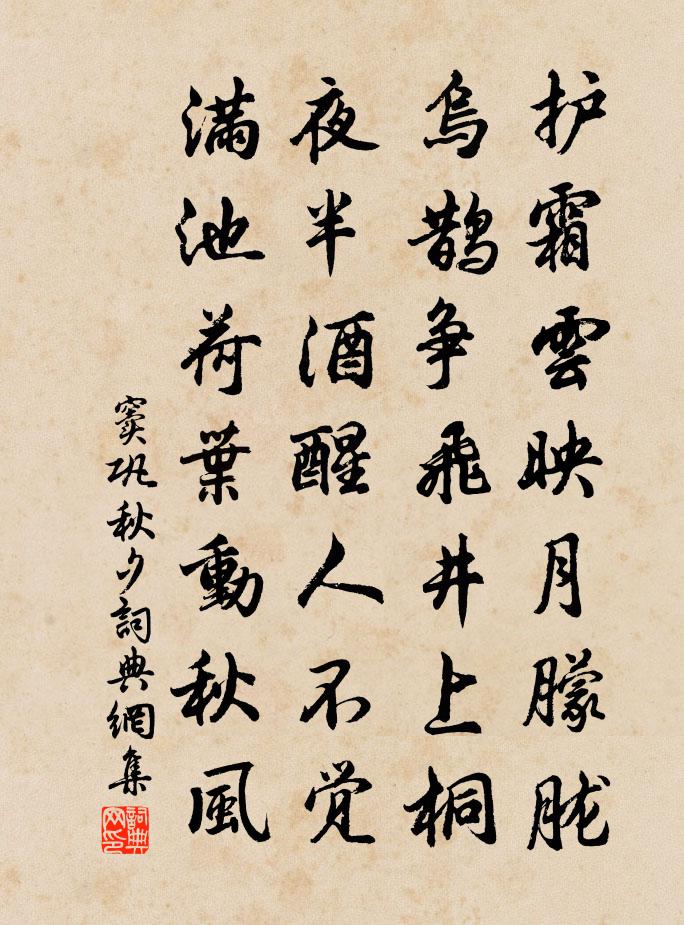 护霜雲映月朦胧
烏鹊争飛井上桐
夜半酒醒人不觉
滿池荷葉動秋風
窦巩秋夕詞典網集
詞典网印